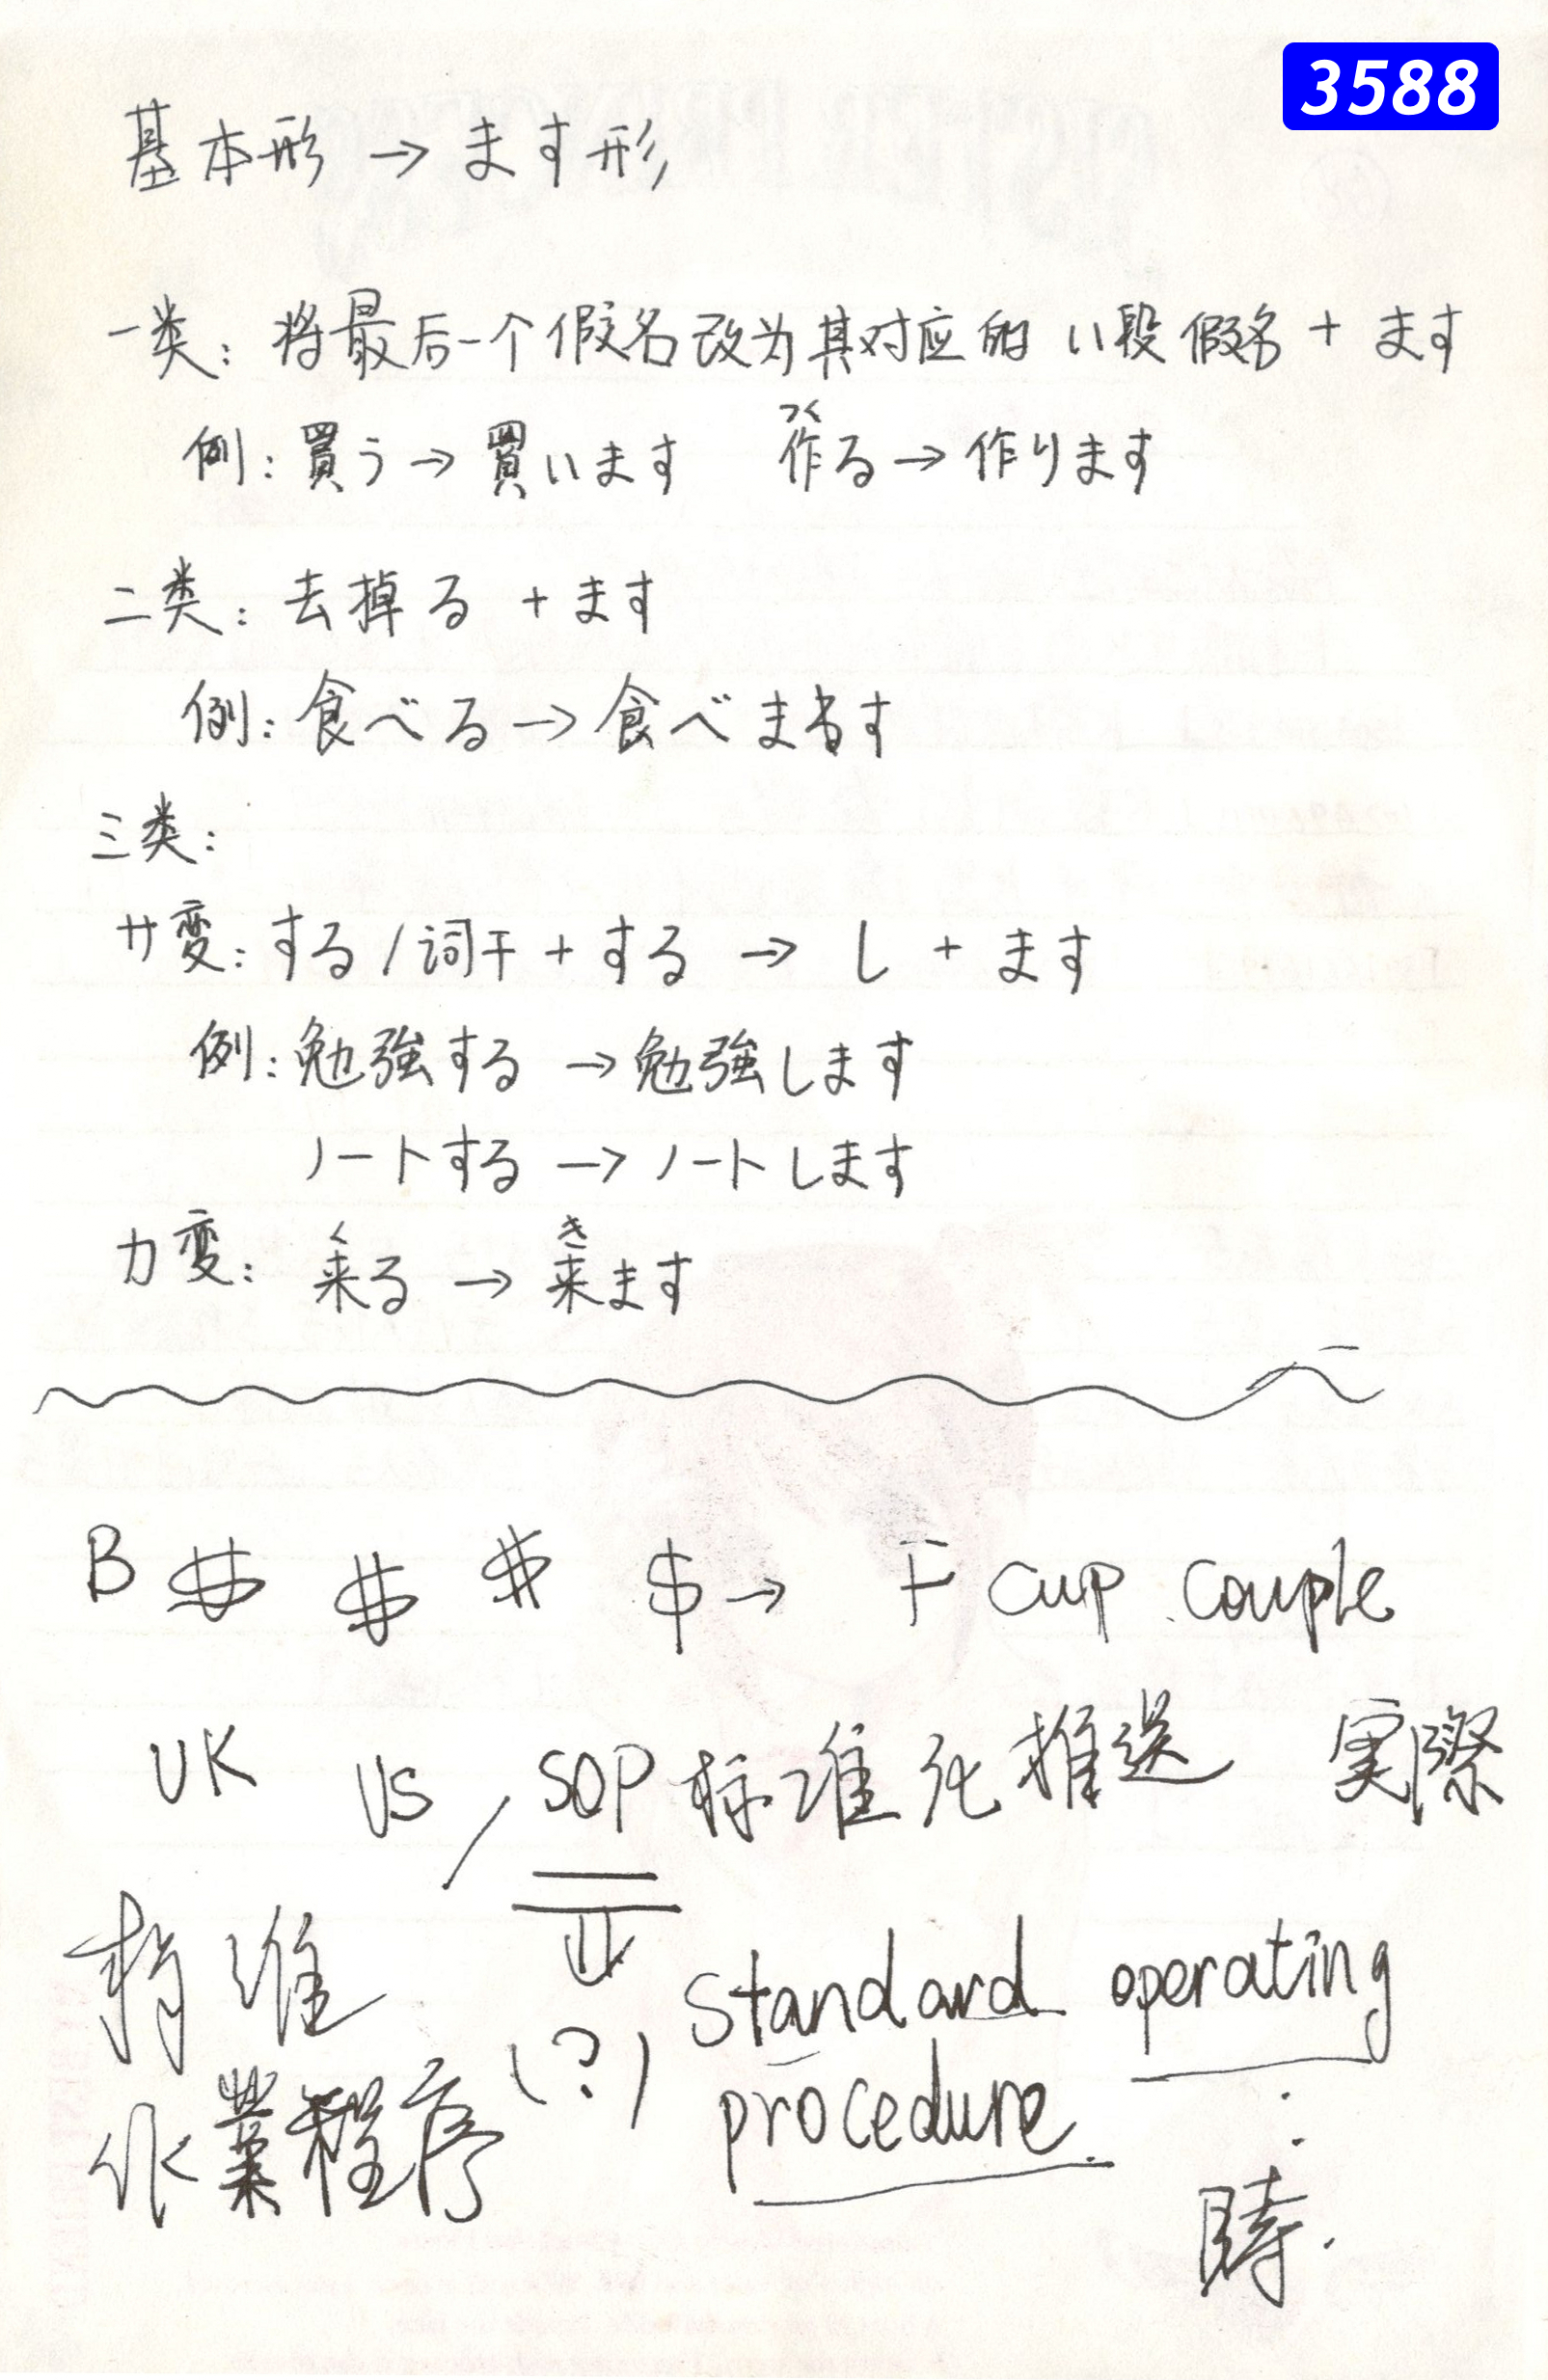 3588
基本形 → ます形
一类: 将最后一个假名改为其对应的 い段假名 + ます
つく
例: 買う → 買います 作る → 作ります
二类: 去掉る + ます
例: 食べる → 食べます
三类:
サ変: する / 词干 + する → し + ます
例: 勉強する → 勉強します
ノートする → ノートします
く き
カ変: 来る → 来ます
B $ $ $ $ → F cup couple
UK US , SOP 标准化推送 実際
standard operating
(?)
作業程序 procedure.
時.